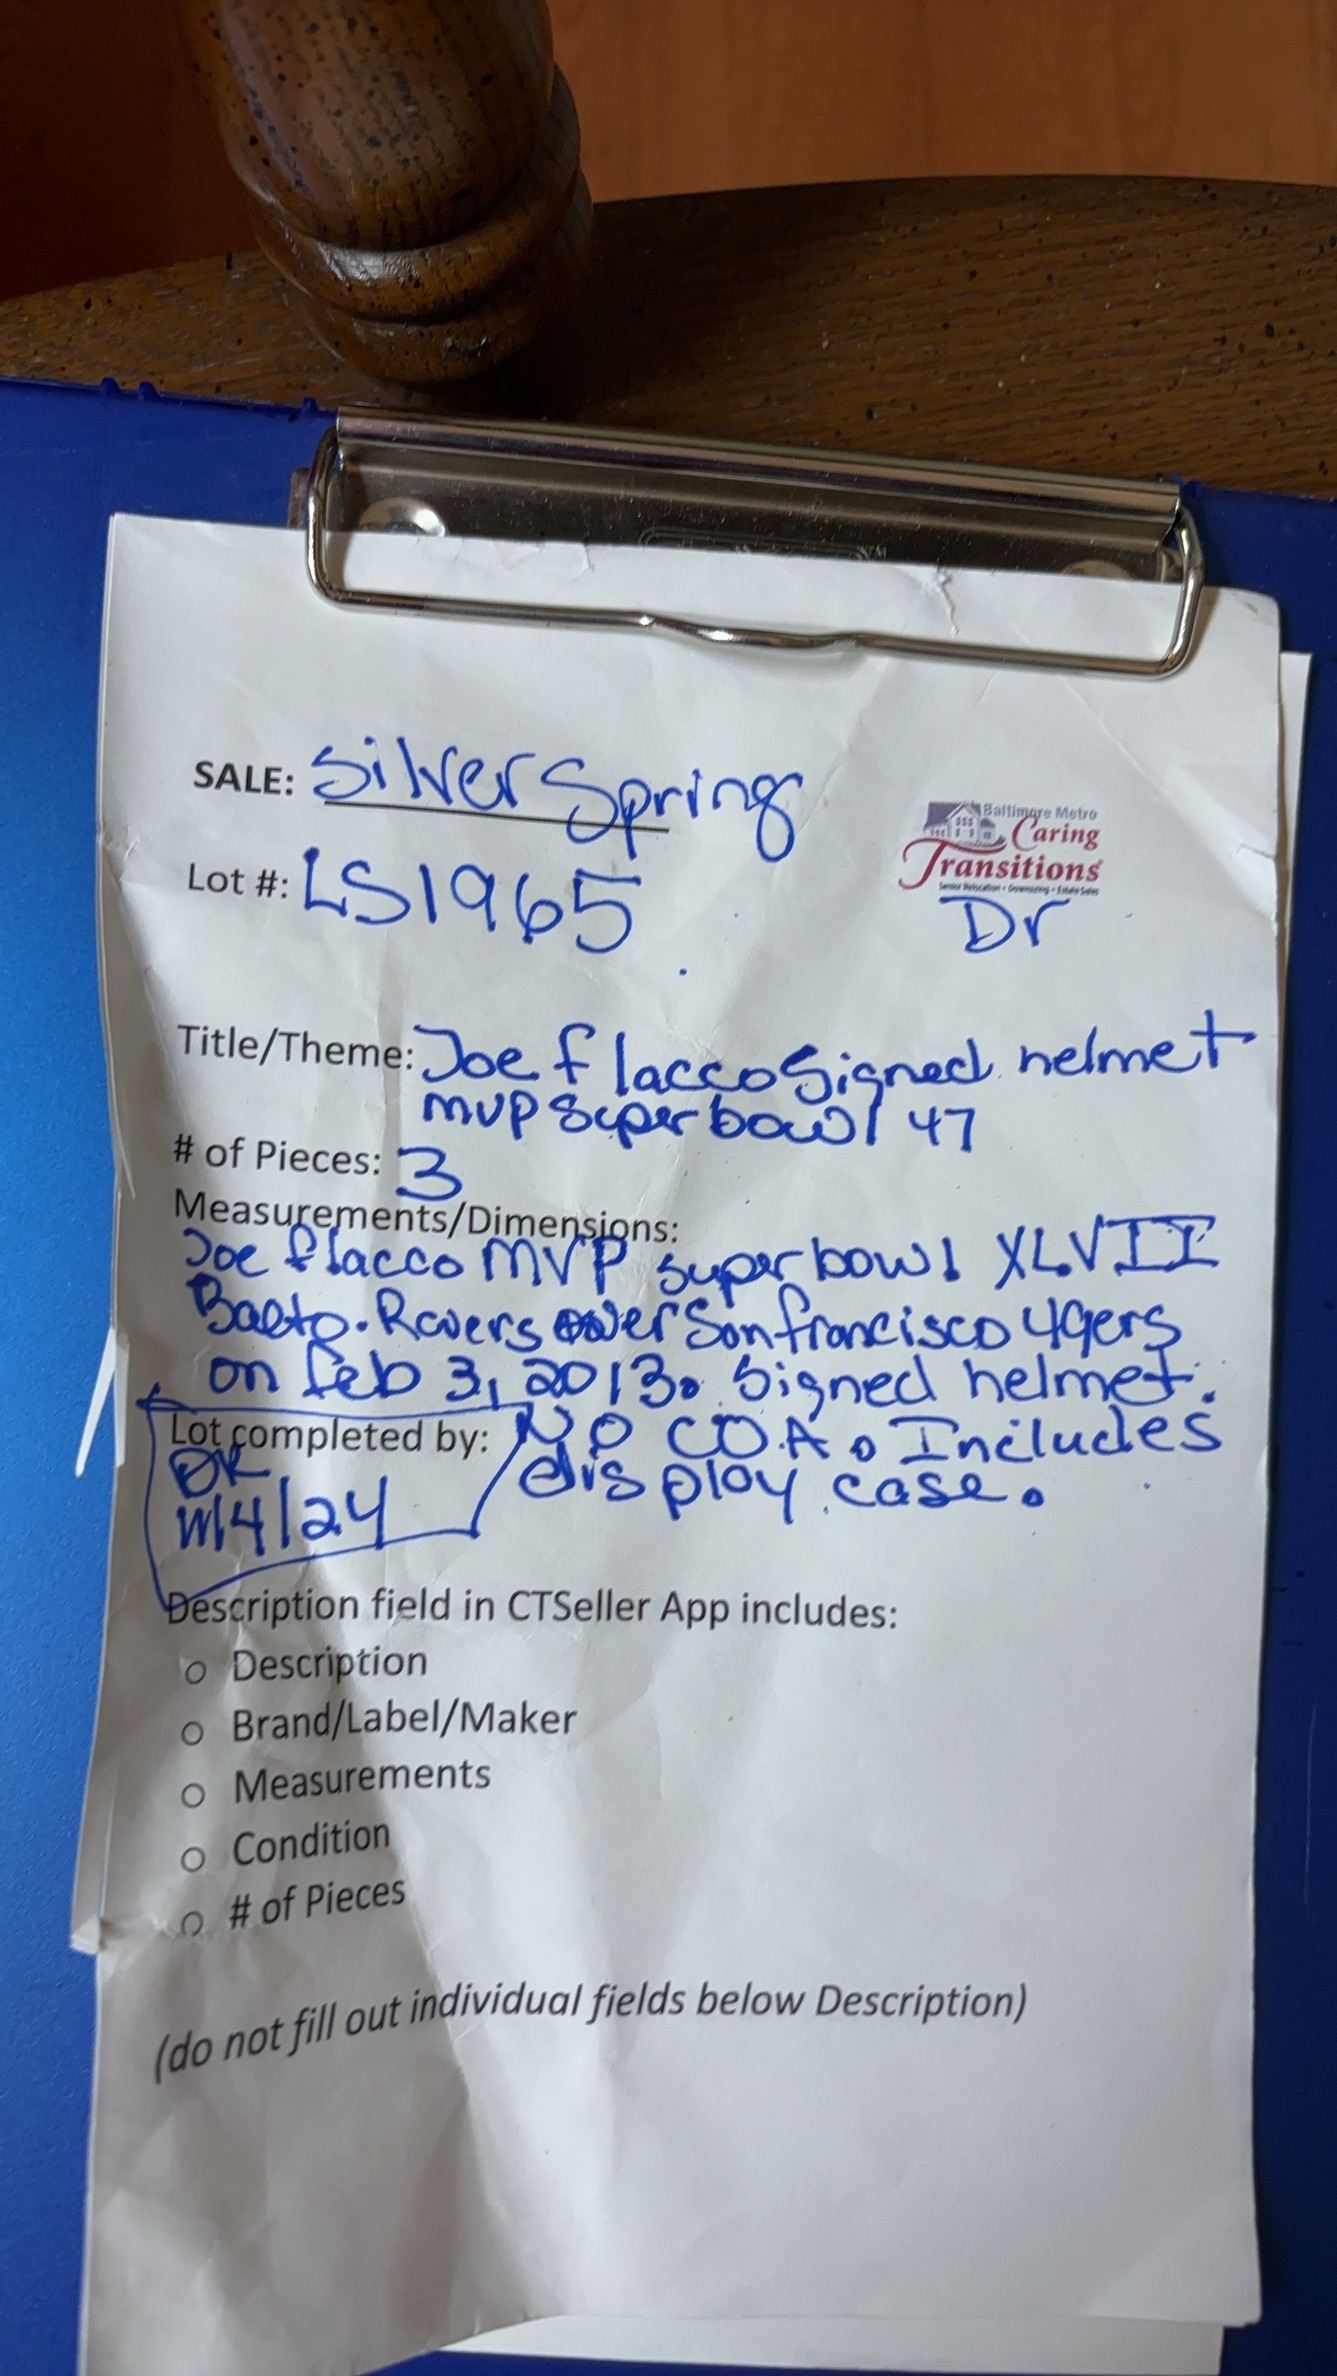 SALE: Silver Spring
Baltimore Metro
Caring
Transitions
Senior Relocation • Downsizing • Estate Sales
Lot #: LS1965
Dr
Title/Theme: Joe flacco Signed helmet
MVP Superbowl 47
# of Pieces: 3
Measurements/Dimensions:
Joe flacco MVP superbowl XLVII
Balto. Ravens over San francisco 49ers
on feb 3, 2013. Signed helmet.
Lot completed by: NO COA. Includes
DR display case.
11/4/24
Description field in CTSeller App includes:
o Description
o Brand/Label/Maker
o Measurements
o Condition
o # of Pieces
(do not fill out individual fields below Description)